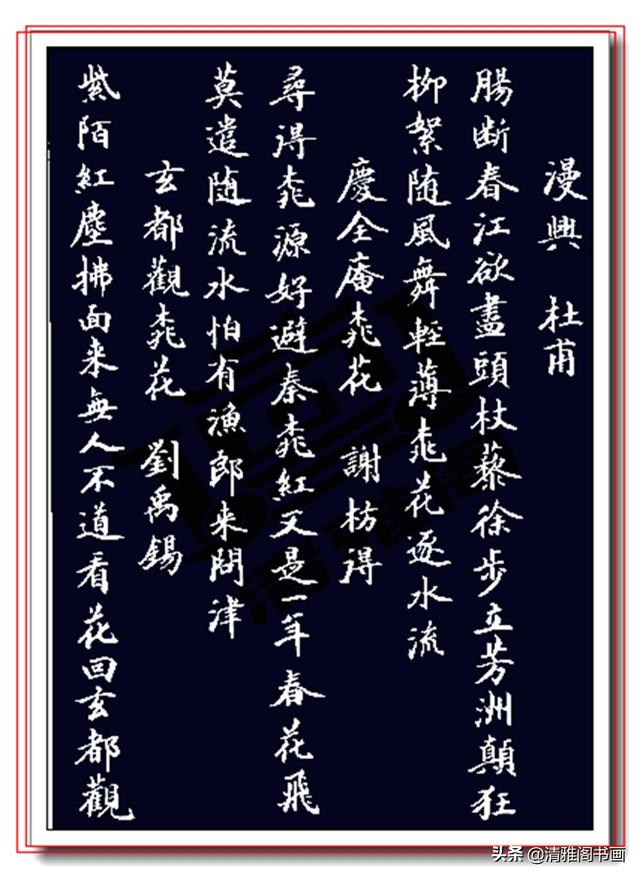 漫興 杜甫
腸断春江欲盡頭杖藜徐步立芳洲顛狂
柳絮随風舞輕薄桃花逐水流
慶全庵桃花 謝枋得
尋得桃源好避秦桃紅又是一年春花飛
莫遣随流水怕有漁郎来問津
玄都觀桃花 劉禹錫
紫陌紅塵拂面来無人不道看花回玄都觀
清雅阁
头条@清雅阁书画